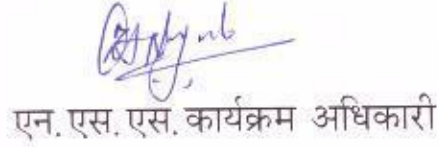 एन. एस. एस. कार्यक्रम अधिकारी